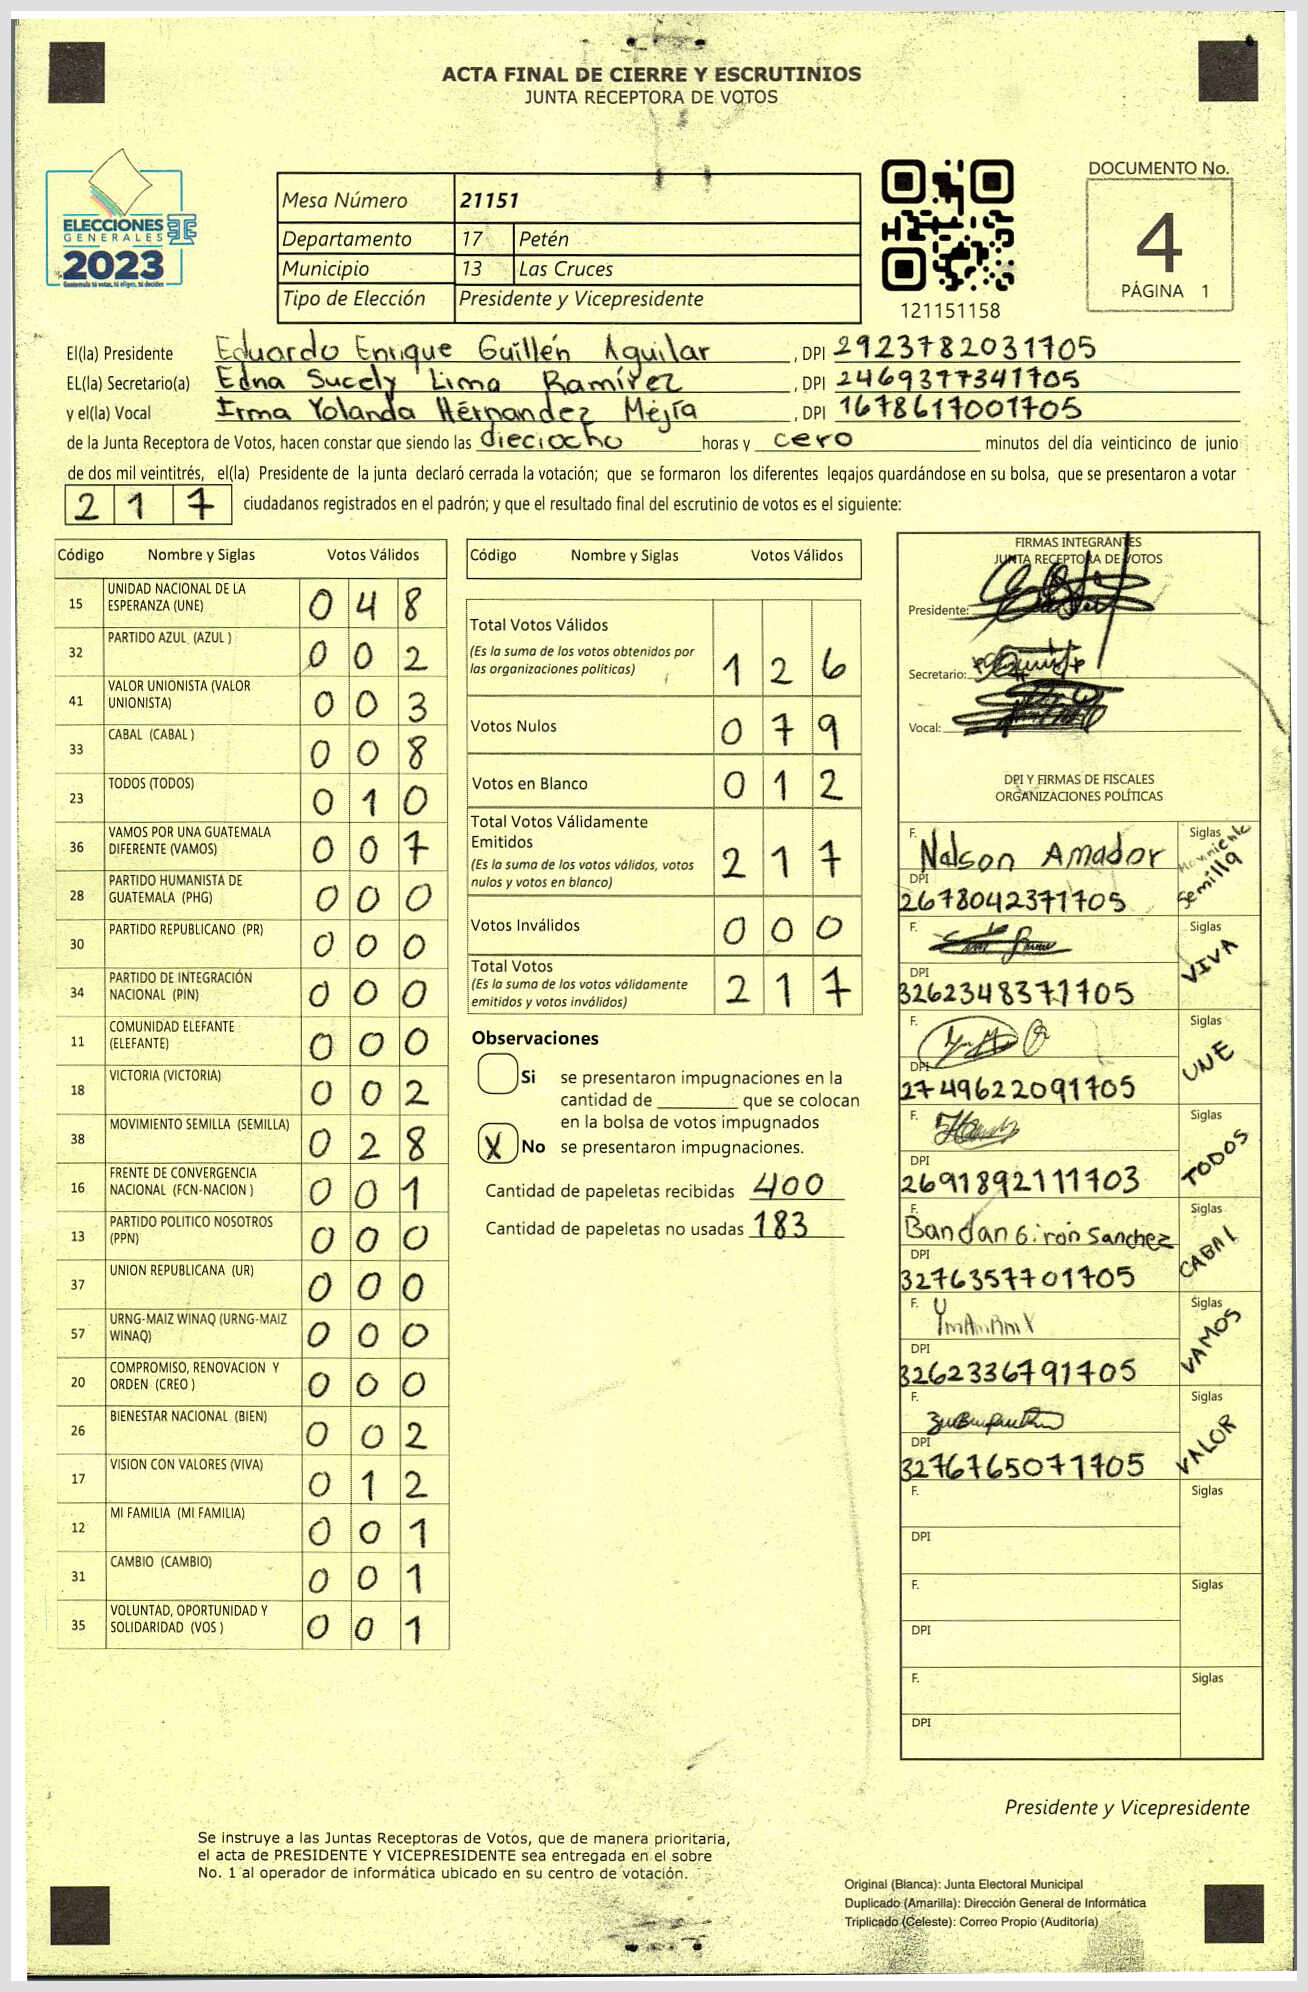 ACTA FINAL DE CIERRE Y ESCRUTINIOS
JUNTA RECEPTORA DE VOTOS
ELECCIONES
GENERALES
2023
Guatemala tú votas, tú eliges, tú decides
Mesa Número 21151
Departamento 17 Petén
Municipio 13 Las Cruces
Tipo de Elección Presidente y Vicepresidente
121151158
DOCUMENTO No.
4
PÁGINA 1
El(la) Presidente Eduardo Enrique Guillén Aguilar , DPI 2923782031705
EL(la) Secretario(a) Edna Sucely Lima Ramírez , DPI 2469377341705
y el(la) Vocal Irma Yolanda Hérnandez Mejía , DPI 1678617001705
de la Junta Receptora de Votos, hacen constar que siendo las dieciocho horas y cero minutos del día veinticinco de junio
de dos mil veintitrés, el(la) Presidente de la junta declaró cerrada la votación; que se formaron los diferentes legajos guardándose en su bolsa, que se presentaron a votar
217 ciudadanos registrados en el padrón; y que el resultado final del escrutinio de votos es el siguiente:
Código Nombre y Siglas Votos Válidos
15 UNIDAD NACIONAL DE LA ESPERANZA (UNE) 048
32 PARTIDO AZUL (AZUL ) 002
41 VALOR UNIONISTA (VALOR UNIONISTA) 003
33 CABAL (CABAL ) 008
23 TODOS (TODOS) 010
36 VAMOS POR UNA GUATEMALA DIFERENTE (VAMOS) 007
28 PARTIDO HUMANISTA DE GUATEMALA (PHG) 000
30 PARTIDO REPUBLICANO (PR) 000
34 PARTIDO DE INTEGRACIÓN NACIONAL (PIN) 000
11 COMUNIDAD ELEFANTE (ELEFANTE) 000
18 VICTORIA (VICTORIA) 002
38 MOVIMIENTO SEMILLA (SEMILLA) 028
16 FRENTE DE CONVERGENCIA NACIONAL (FCN-NACION ) 001
13 PARTIDO POLITICO NOSOTROS (PPN) 000
37 UNION REPUBLICANA (UR) 000
57 URNG-MAIZ WINAQ (URNG-MAIZ WINAQ) 000
20 COMPROMISO, RENOVACION Y ORDEN (CREO ) 000
26 BIENESTAR NACIONAL (BIEN) 002
17 VISION CON VALORES (VIVA) 012
12 MI FAMILIA (MI FAMILIA) 001
31 CAMBIO (CAMBIO) 001
35 VOLUNTAD, OPORTUNIDAD Y SOLIDARIDAD (VOS ) 001
Código Nombre y Siglas Votos Válidos
Total Votos Válidos
(Es la suma de los votos obtenidos por
las organizaciones políticas) 126
Votos Nulos 079
Votos en Blanco 012
Total Votos Válidamente
Emitidos
(Es la suma de los votos válidos, votos
nulos y votos en blanco) 217
Votos Inválidos 000
Total Votos
(Es la suma de los votos válidamente
emitidos y votos inválidos) 217
Observaciones
Si se presentaron impugnaciones en la
cantidad de ________ que se colocan
en la bolsa de votos impugnados
X No se presentaron impugnaciones.
Cantidad de papeletas recibidas 400
Cantidad de papeletas no usadas 183
FIRMAS INTEGRANTES
JUNTA RECEPTORA DE VOTOS
Presidente:
Secretario:
Vocal:
DPI Y FIRMAS DE FISCALES
ORGANIZACIONES POLÍTICAS
F. Nelson Amador Siglas Movimiento Semilla
DPI 2678042371705
F. Siglas VIVA
DPI 3262348371705
F. Siglas UNE
DPI 2749622091705
F. Siglas TODOS
DPI 2691892111703
F. Bandan Girón Sanchez Siglas CABAL
DPI 3276357701705
F. Siglas VAMOS
DPI 3262336791705
F. Siglas VALOR
DPI 3276765071705
F. Siglas
DPI
F. Siglas
DPI
F. Siglas
DPI
Presidente y Vicepresidente
Se instruye a las Juntas Receptoras de Votos, que de manera prioritaria,
el acta de PRESIDENTE Y VICEPRESIDENTE sea entregada en el sobre
No. 1 al operador de informática ubicado en su centro de votación.
Original (Blanca): Junta Electoral Municipal
Duplicado (Amarilla): Dirección General de Informática
Triplicado (Celeste): Correo Propio (Auditoría)